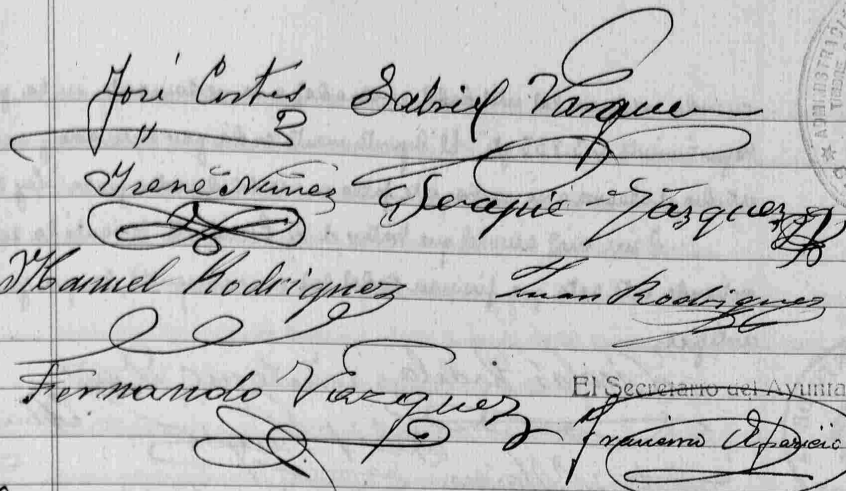 José Cortés Gabriel Vazquez
Irené Núñez Serapio Vázquez
Manuel Rodriguez Juan Rodriguez
Fernando Vazquez
El Secretario del Ayunta
Francisco Aparicio
ADMINISTRACI
TIMBRE